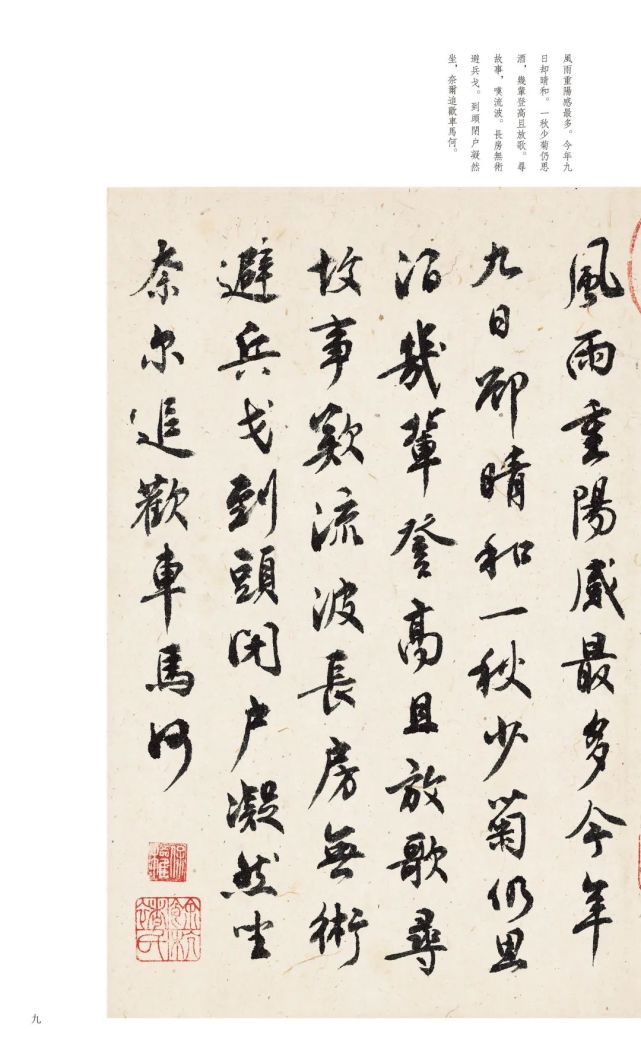 風雨重陽感最多。今年九
日却晴和。一秋少菊仍思
酒，幾輩登高且放歌。尋
故事，嘆流波。長房無術
避兵戈。到頭閉户凝然
坐，奈爾追歡車馬何。
風雨重陽感最多今年
九日却晴和一秋少菊仍思
酒幾輩登高且放歌尋
故事歎流波長房無術
避兵戈到頭閉户凝然坐
奈尔追歡車馬何
九